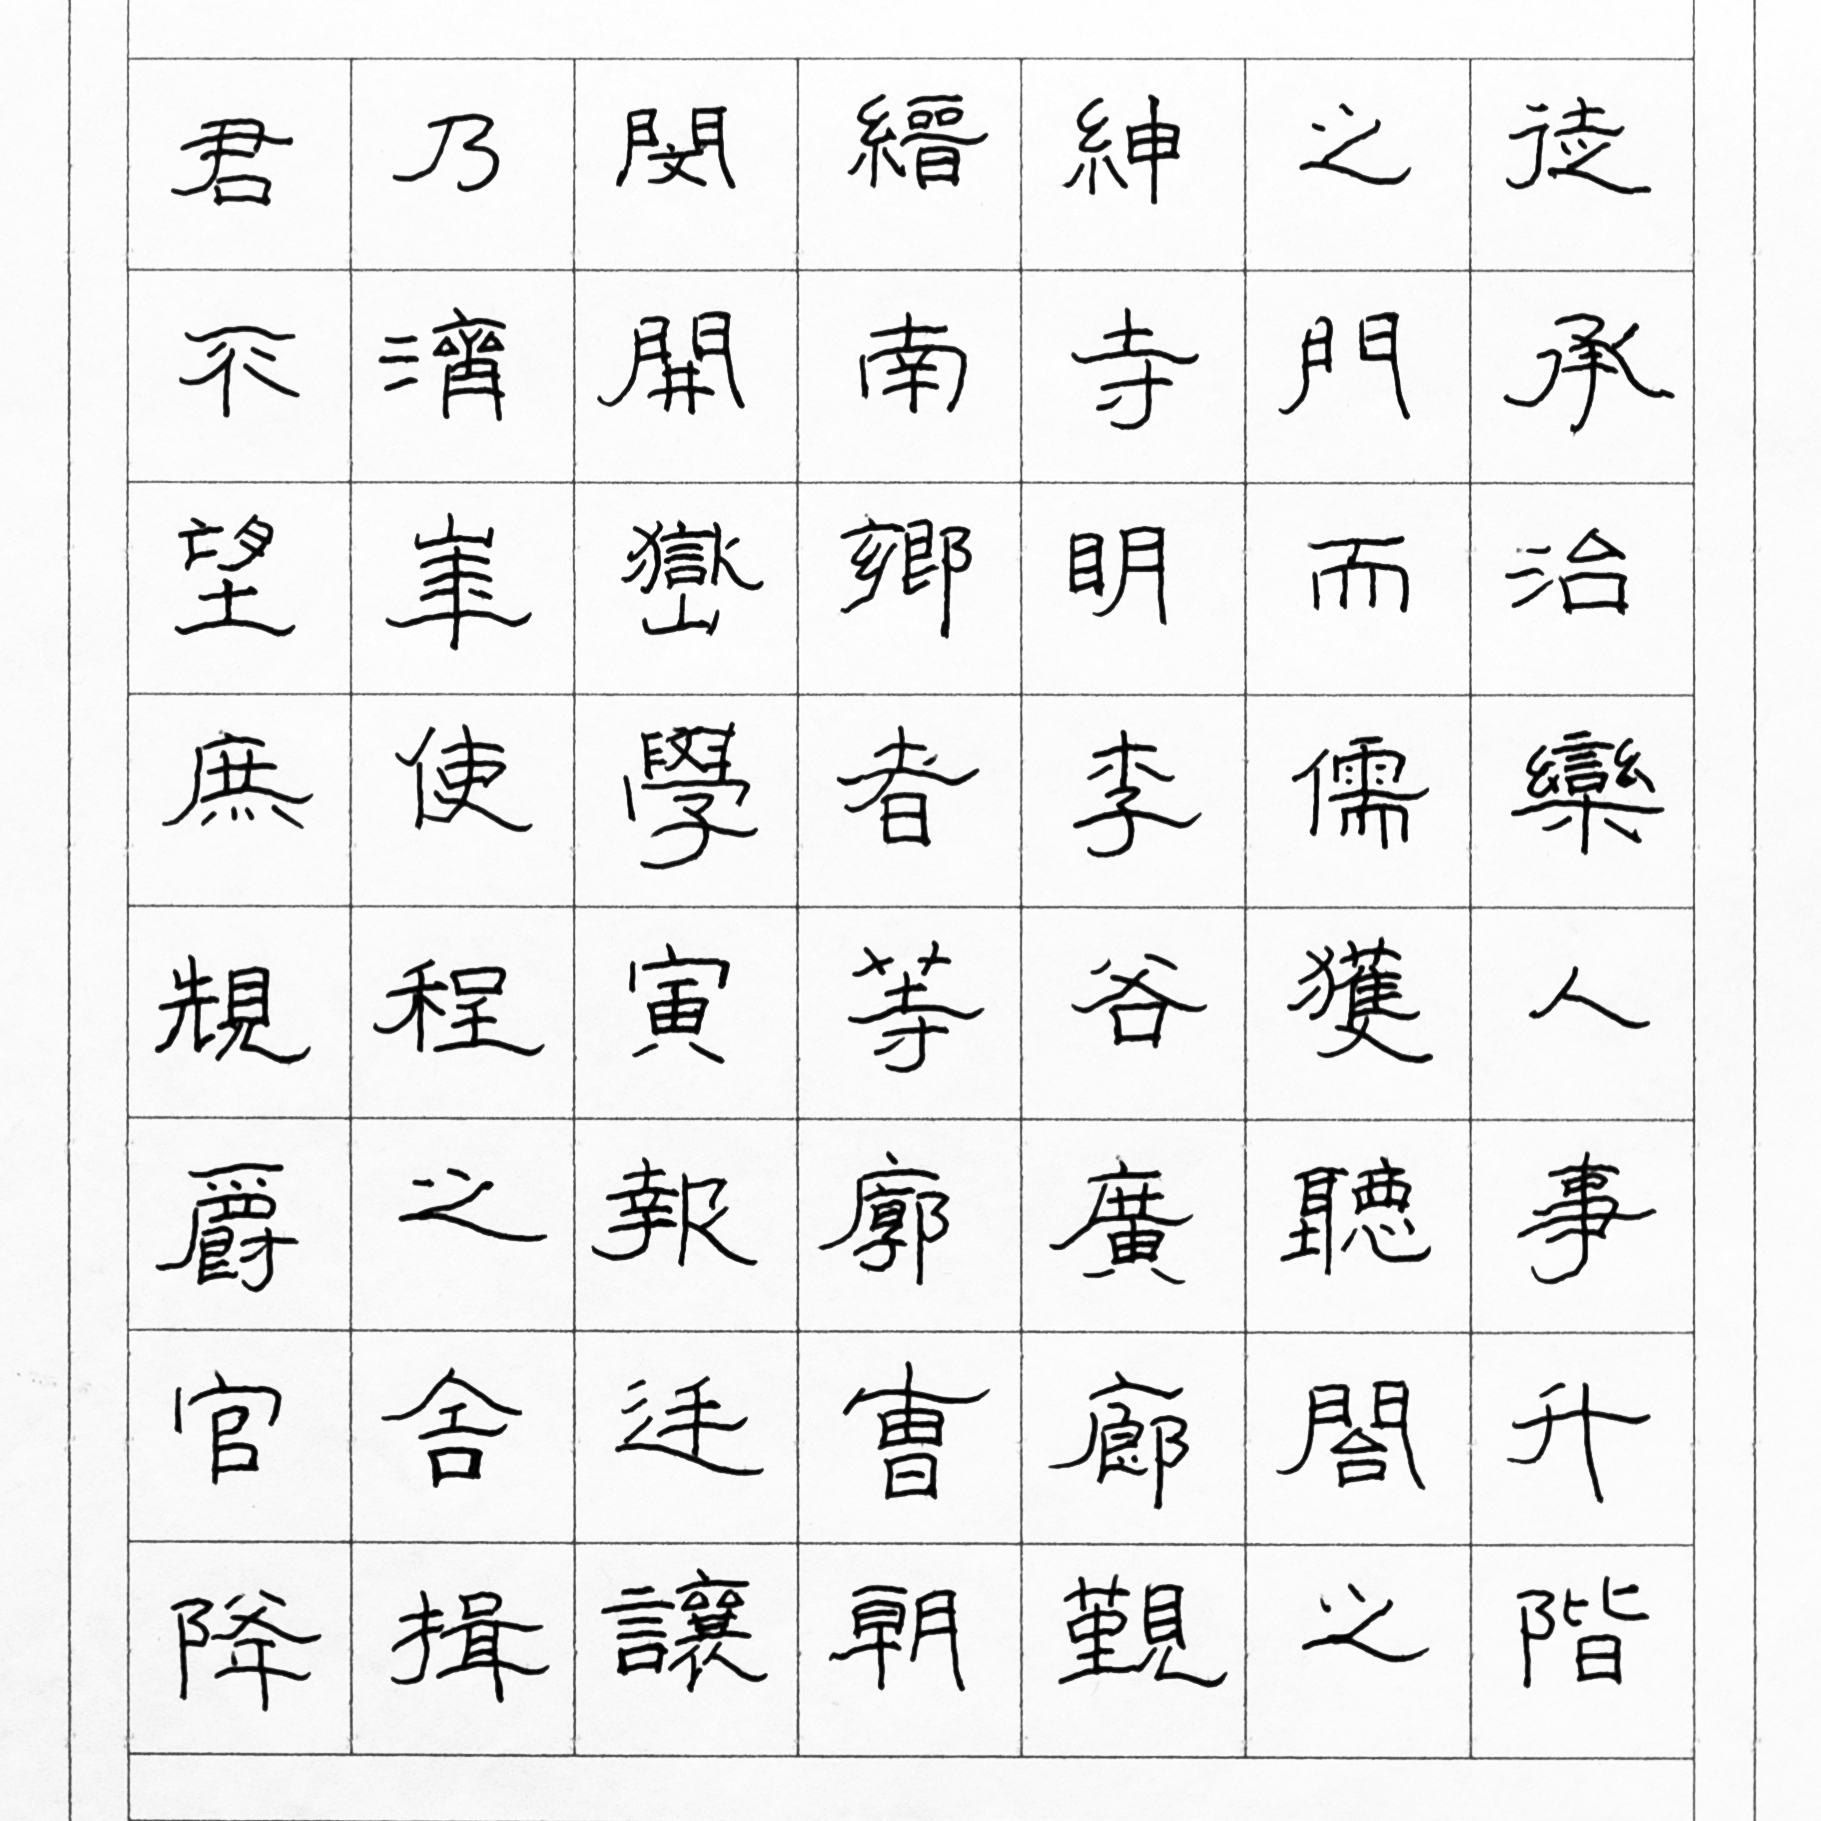 君乃閔縉紳之徒
不濟開南寺門承
望崋嶽鄉明而治
庶使學者李儒欒
規程寅等各獲人
爵之報廓廣聽事
官舍廷曹廊閤升
降揖讓朝覲之階